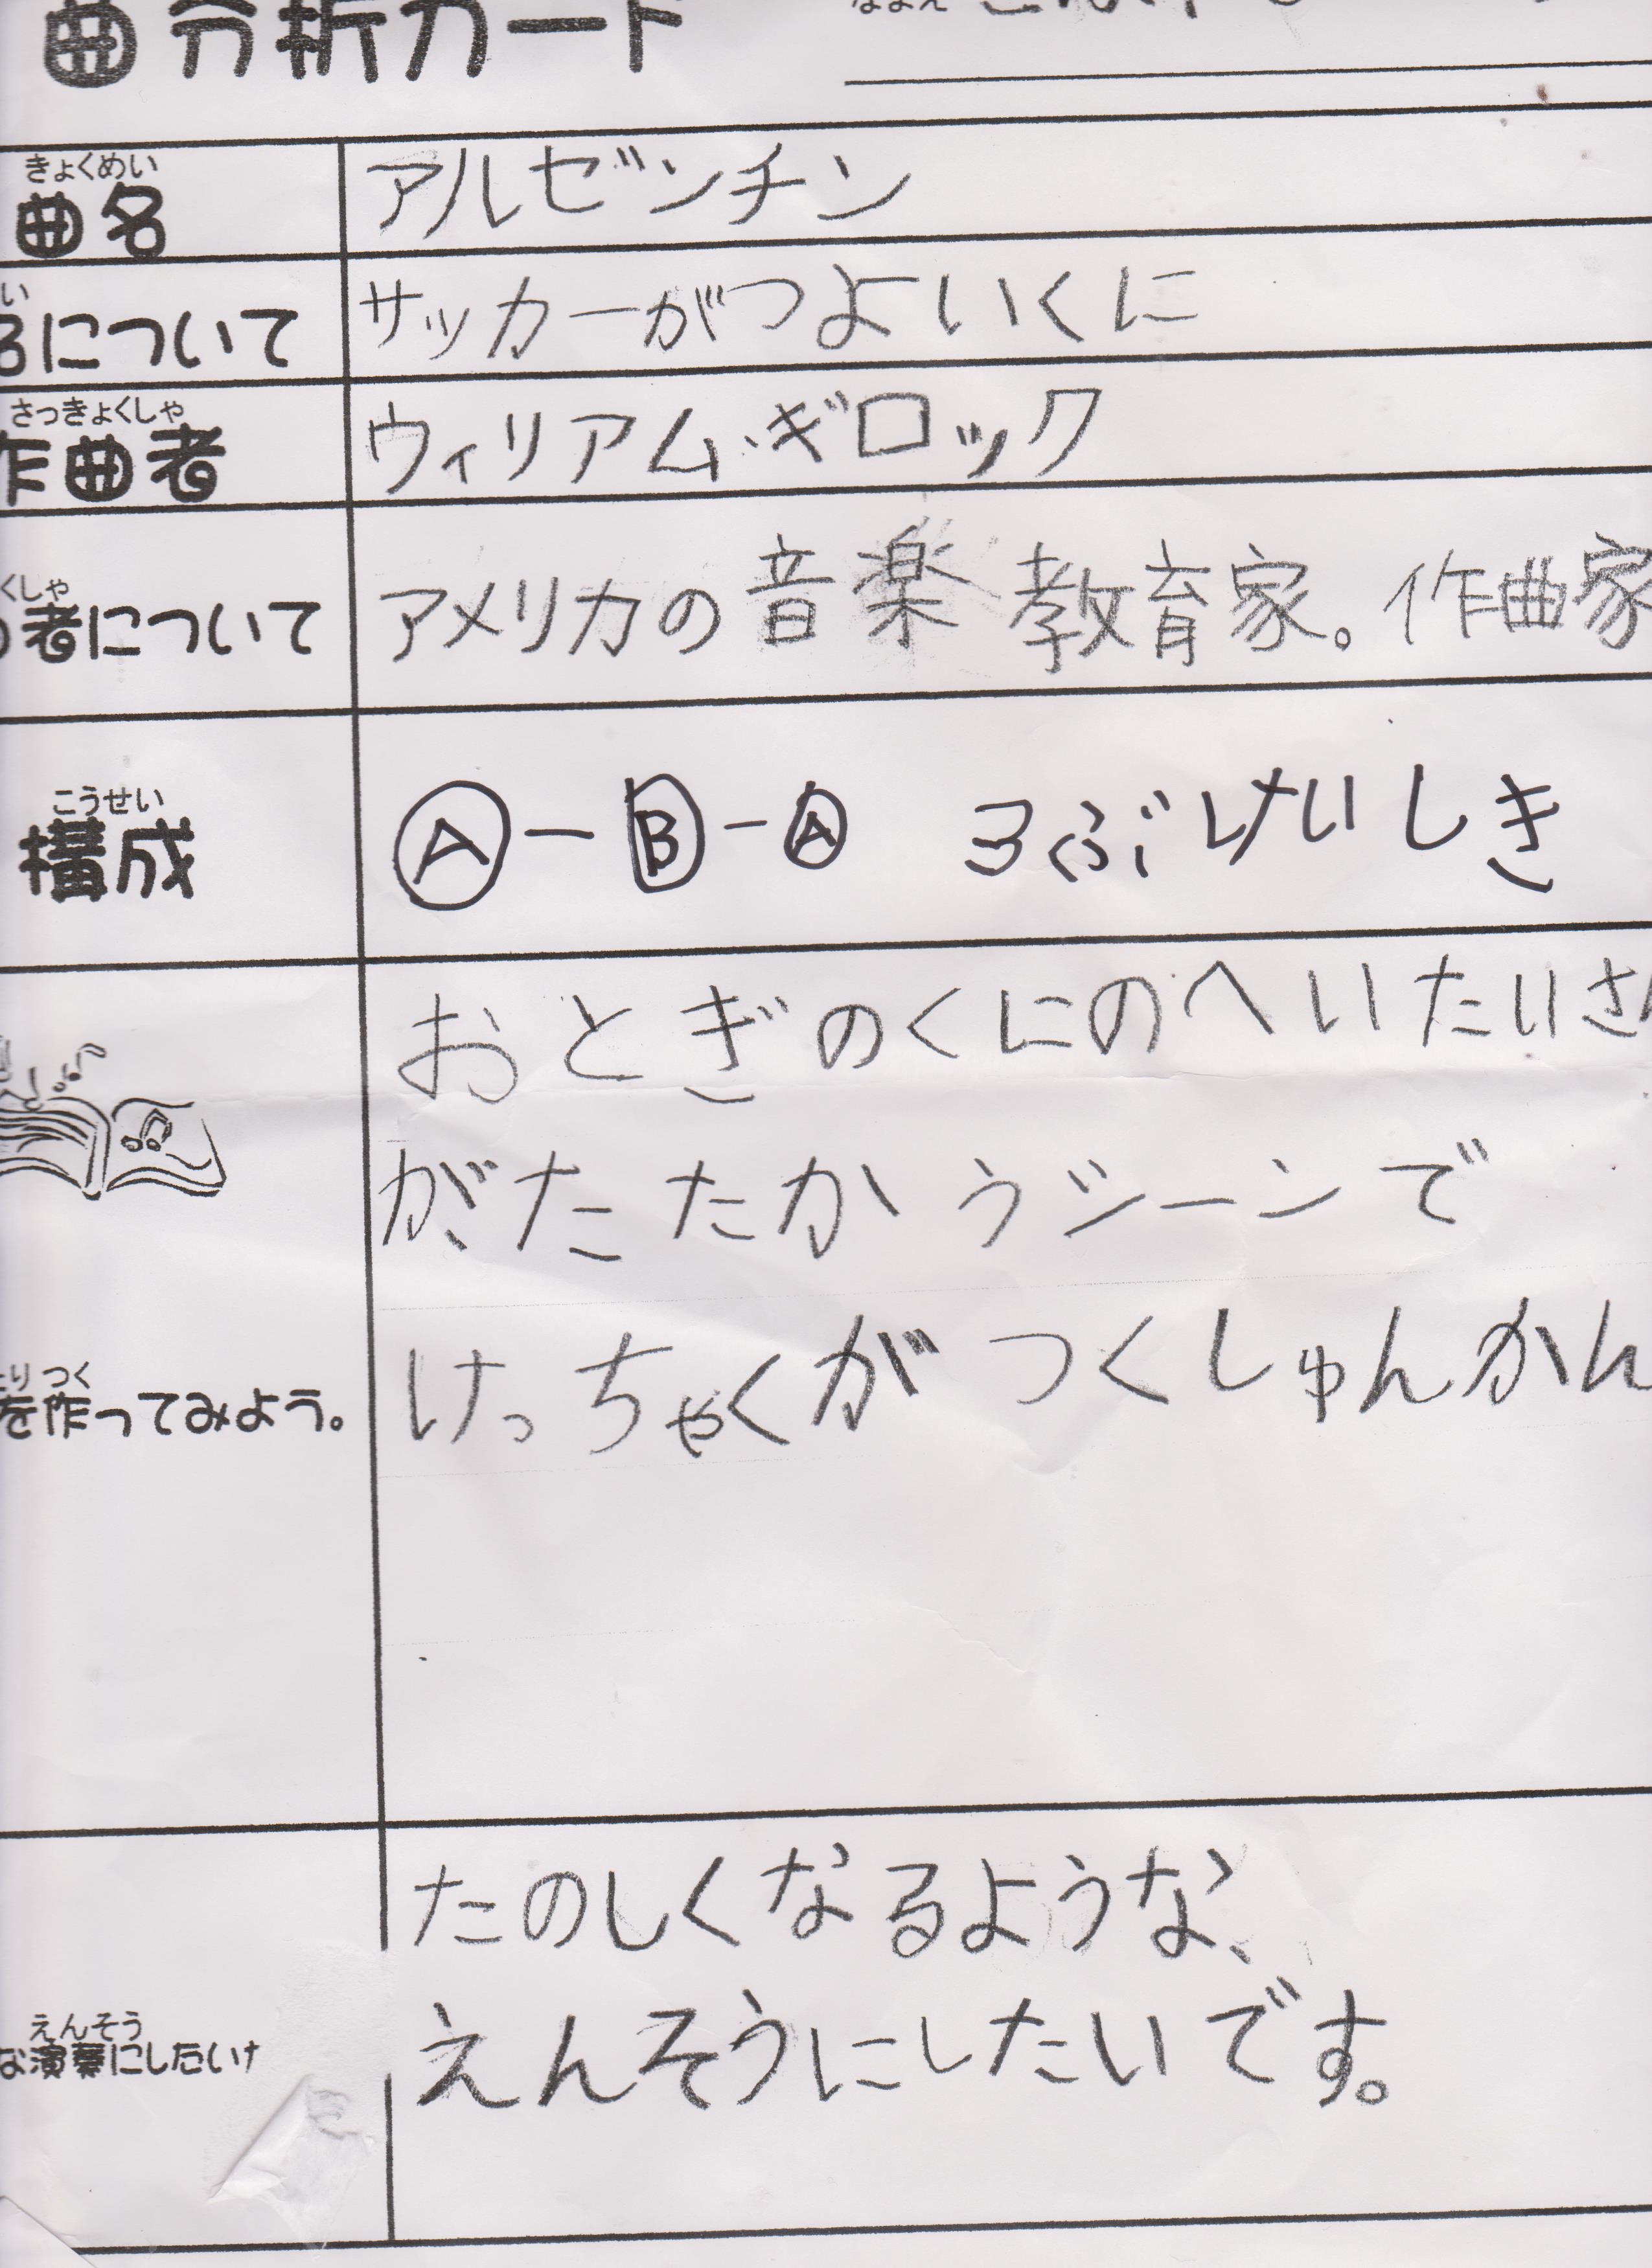 曲分析カード
なまえ
きょくめい
曲名 アルゼンチン
について サッカーがつよいくに
さっきょくしゃ
作曲者 ウィリアム・ギロック
くしゃ
者について アメリカの音楽教育家。作曲家
こうせい
構成 Ⓐ-Ⓑ-Ⓐ 3ぶけいしき
おとぎのくにのへいたいさん
がたたかうシーンで
けっちゃくがつくしゅんかん
り つく
を作ってみよう。
たのしくなるような、
えんそうにしたいです。
えんそう
な演奏にしたいけ